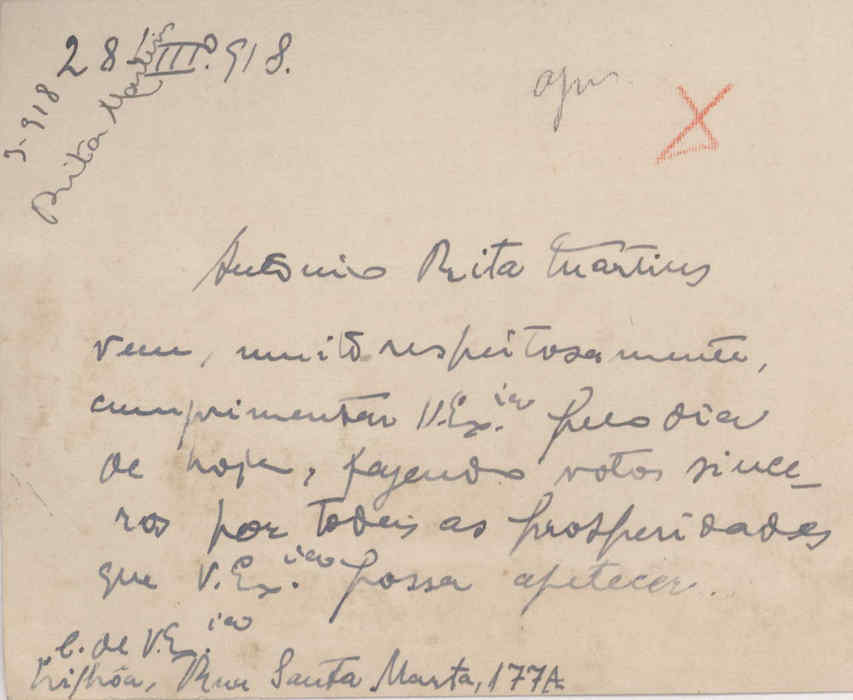 28-III.918.
3-918
Rita Martins
António Rita Martins
vem, muito respeitosamente,
cumprimentar V. Ex.ia pelo dia
de hoje, fazendo votos since-
ros por todas as prosperidades
que V. Ex.ia possa apetecer.
C. de V. Ex.ia
Lisbôa, Rua Santa Marta, 177A